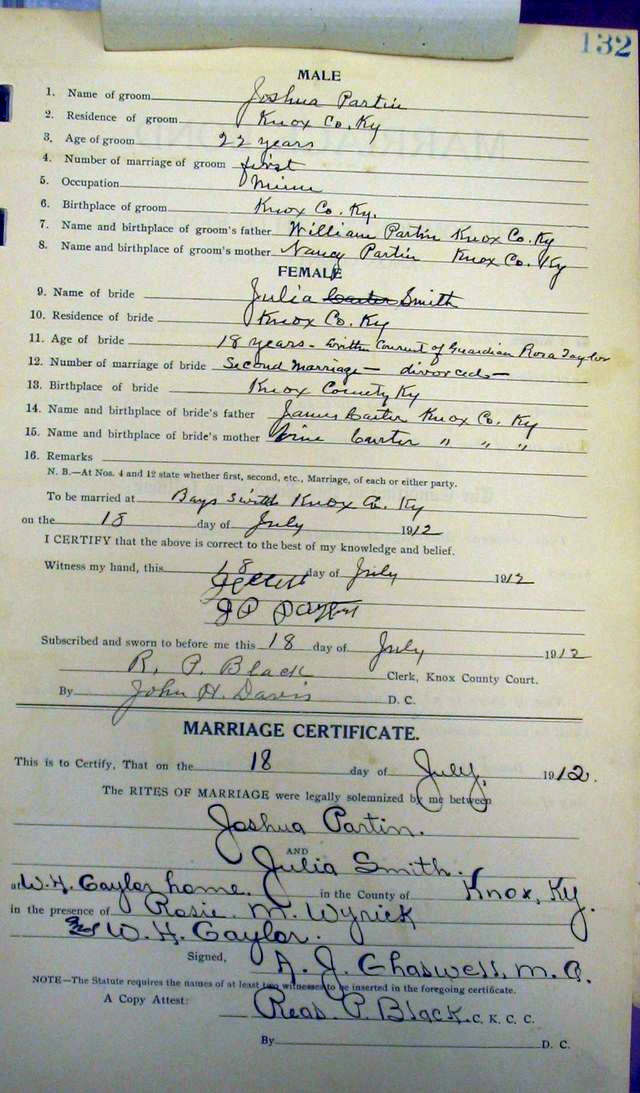 132
MALE
1. Name of groom Joshua Partin
2. Residence of groom Knox Co. Ky
3. Age of groom 22 years
4. Number of marriage of groom first
5. Occupation
6. Birthplace of groom Knox Co. Ky.
7. Name and birthplace of groom's father William Partin Knox Co. Ky
8. Name and birthplace of groom's mother Nancy Partin Knox Co. Ky
FEMALE
9. Name of bride Julia Carter Smith
10. Residence of bride Knox Co. Ky
11. Age of bride 18 years - written Consent of Guardian Rosa
12. Number of marriage of bride Second Marriage - divorced -
13. Birthplace of bride Knox County Ky
14. Name and birthplace of bride's father James Carter Knox Co. Ky
15. Name and birthplace of bride's mother Carter " " "
16. Remarks
N. B.—At Nos. 4 and 12 state whether first, second, etc., Marriage, of each or either party.
To be married at Bays Knox Co. Ky
on the 18 day of July 1912
I CERTIFY that the above is correct to the best of my knowledge and belief.
Witness my hand, this 18 day of July 1912
Subscribed and sworn to before me this 18 day of July 1912
R. P. Black Clerk, Knox County Court.
By John H. Davis D. C.
MARRIAGE CERTIFICATE.
This is to Certify, That on the 18 day of July, 1912.
The RITES OF MARRIAGE were legally solemnized by me between
Joshua Partin.
AND
Julia Smith.
at W. H. Gaylor home. in the County of Knox, Ky.
in the presence of Rosie M. Wyrick
and W. H. Gaylor.
Signed, A. J. Chaswell, M. G.
NOTE—The Statute requires the names of at least two witnesses to be inserted in the foregoing certificate.
A Copy Attest: Read P. Black C. K. C. C.
By D. C.